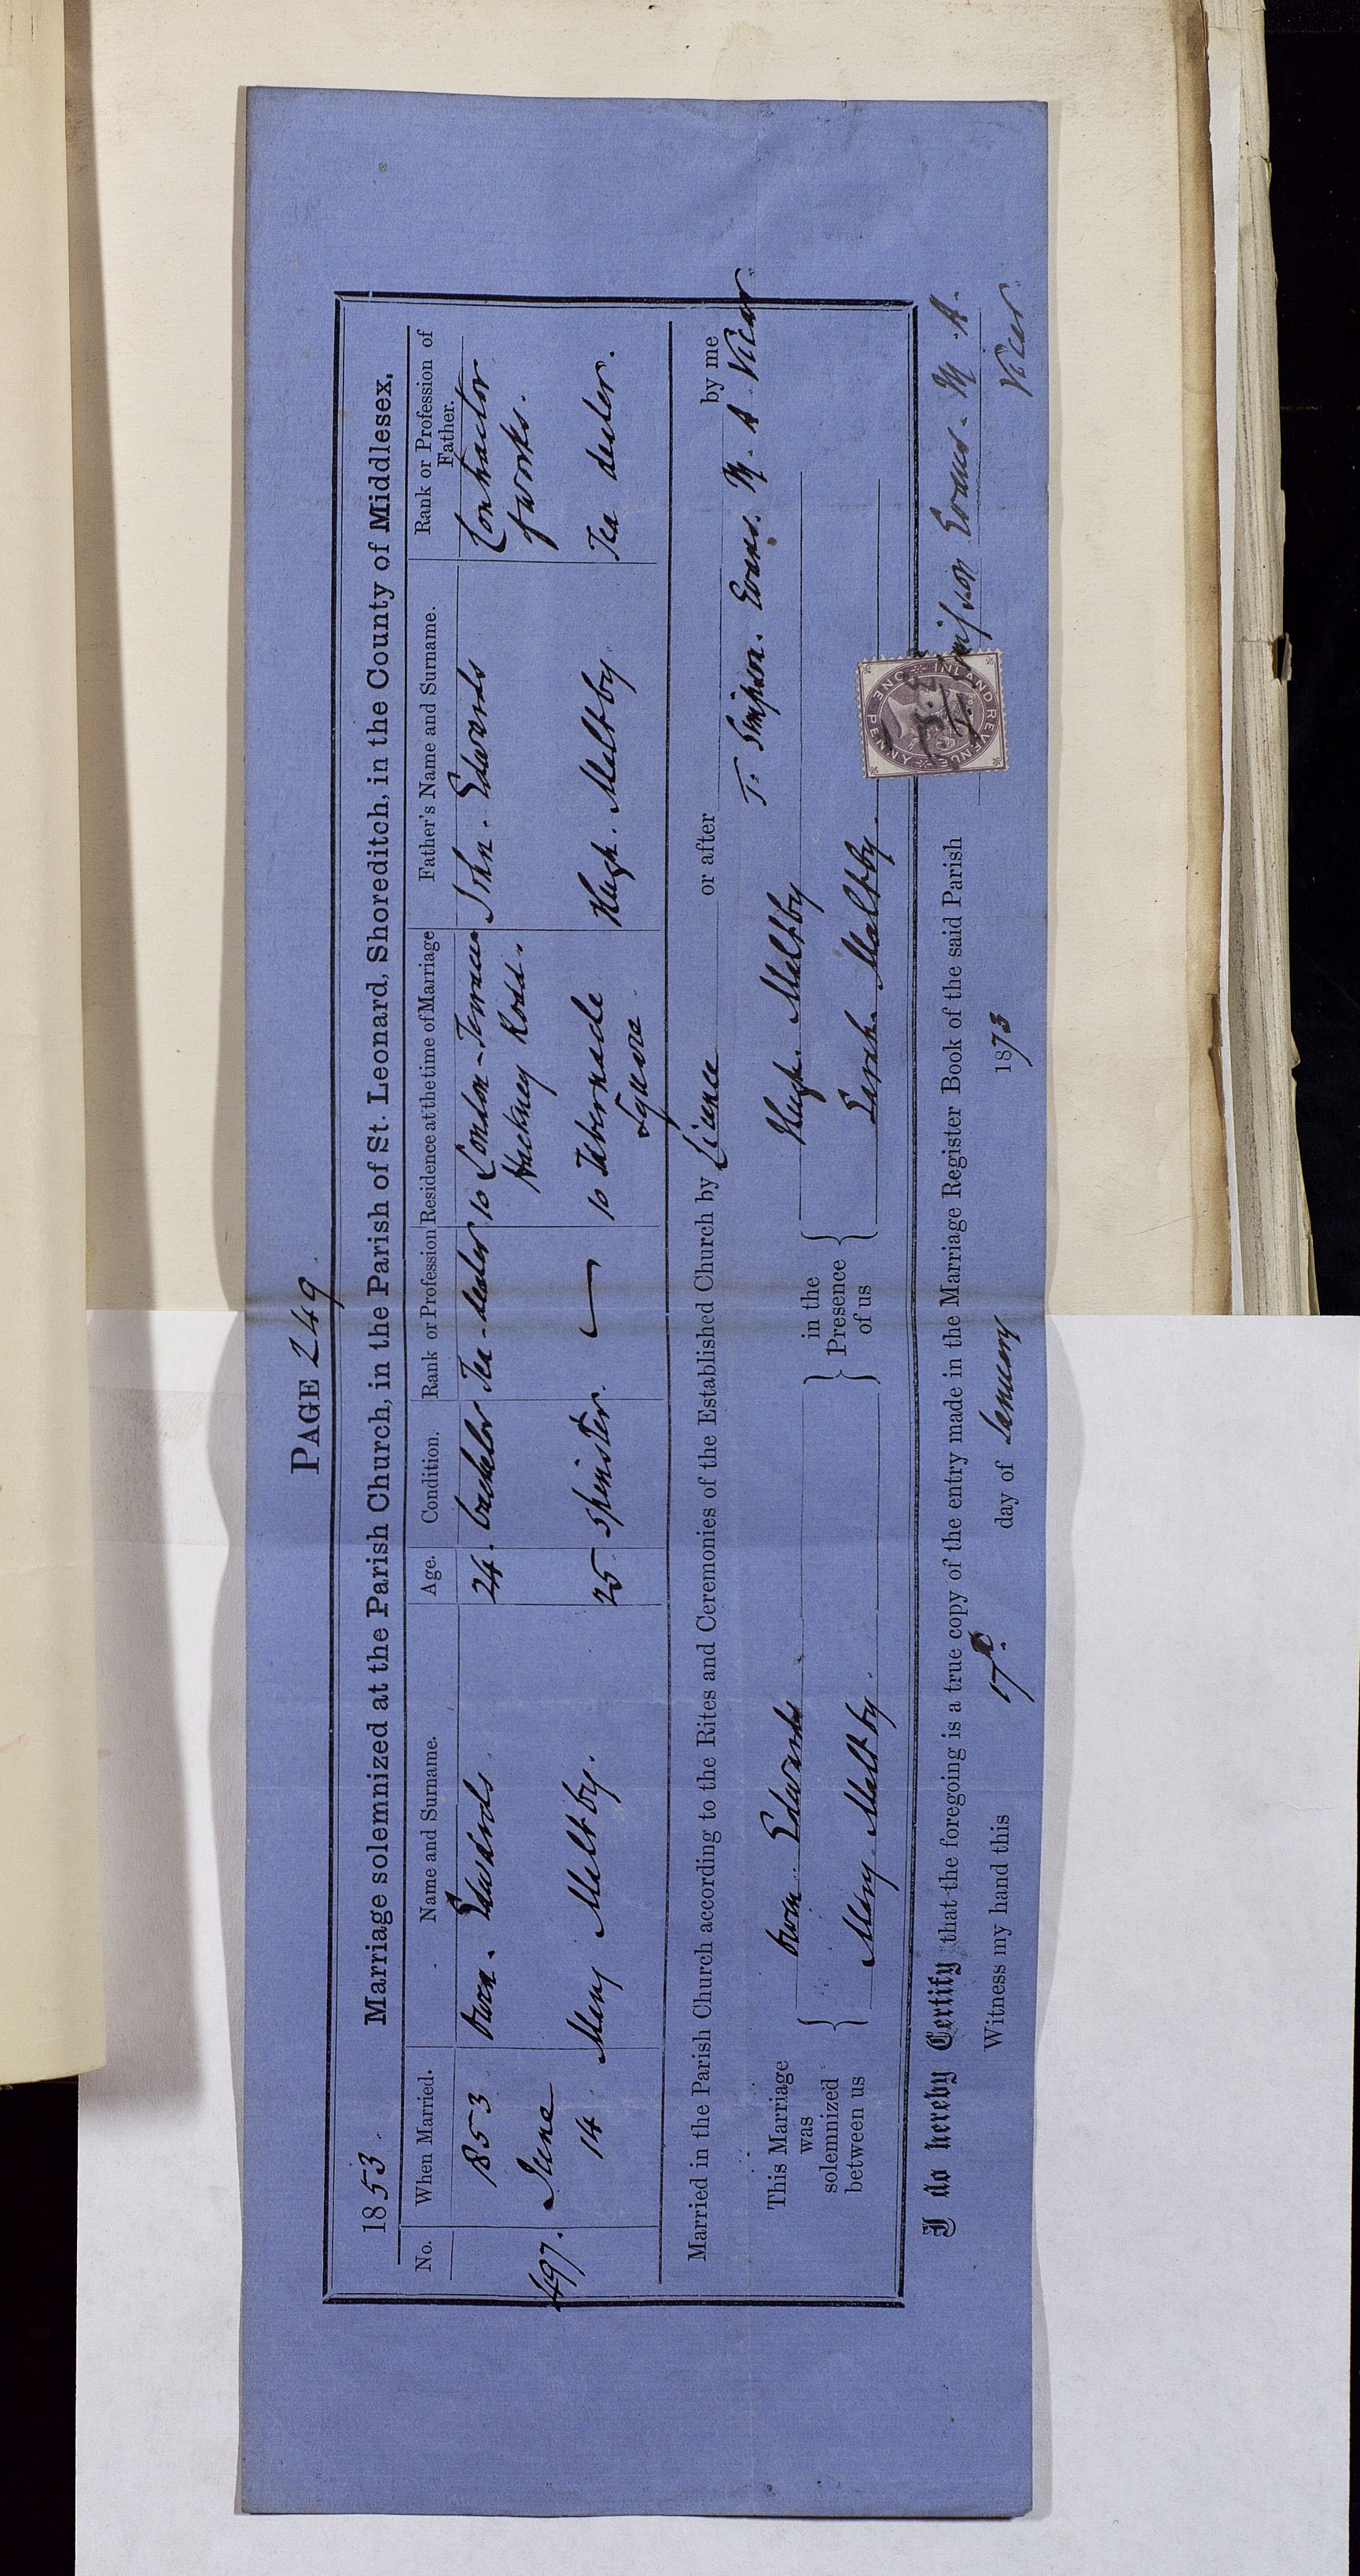 PAGE 249.
1853. Marriage solemnized at the Parish Church, in the Parish of St. Leonard, Shoreditch, in the County of Middlesex.
No. When Married. Name and Surname. Age. Condition. Rank or Profession Residence at the time of Marriage Father's Name and Surname. Rank or Profession of Father.
1853 Owen. Edwards. 24. bachelor Tea-dealer 10 London-Terrace John. Edwards Contractor
497. June Hackney Road. of works.
14 Mary Maltby. 25 spinster. — 10 Tabernacle Hugh. Maltby. Tea dealer.
Square
Married in the Parish Church according to the Rites and Ceremonies of the Established Church by Licence or after by me
T. Simpson. Evans. M. A Vicar
This Marriage was solemnized between us { Owen Edwards } in the Presence of us { Hugh. Maltby
Mary Maltby. Sarah. Maltby.
I do hereby Certify that the foregoing is a true copy of the entry made in the Marriage Register Book of the said Parish
Witness my hand this 17th day of January 1873
Simpson Evans. M. A.
Vicar.
INLAND REVENUE
ONE PENNY